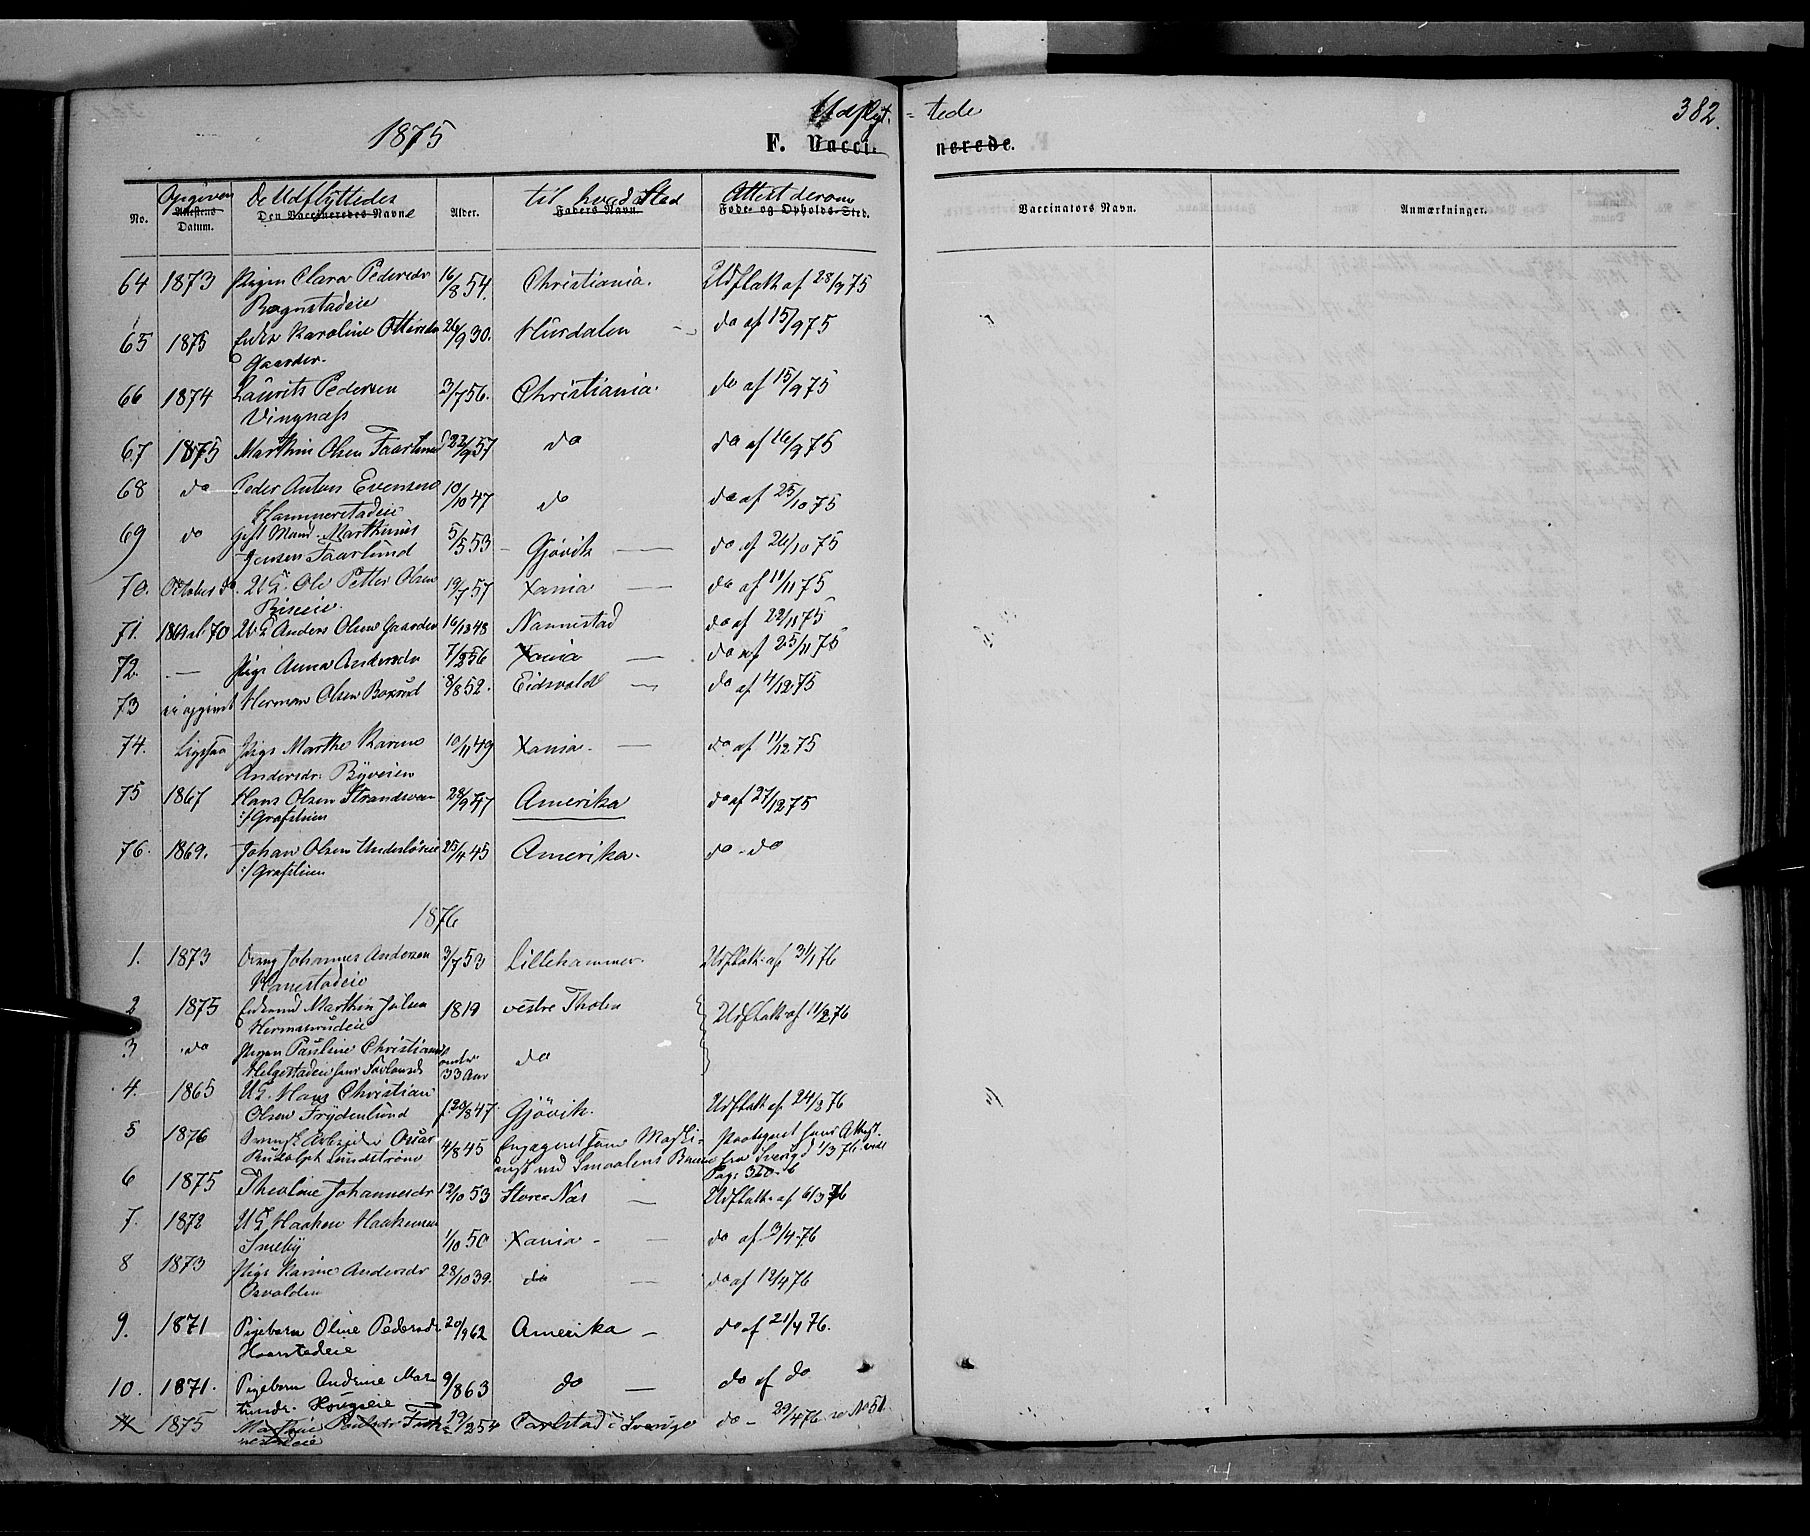 382.
1875
Udflyt=tede
F. Vaccinerede.
No.
Opgiven
Attestens
Datum.
De Udflyttedes
Den Vaccineredes Navn
Alder.
til hvad Sted
Faders Navn.
Attest derom
Føde- og Opholds-Sted.
Vaccinators Navn.
Anmærkninger.
64 1873 Pigen Clara Pedersdr 16/8 54. Christiania. Udflatt af 28/9 75
Rognstadeie
65 1875 Enke Karoline 26/9 30. Hurdalen do af 15/9 75
Gaarder.
66 1874 Laurits Pedersen 3/7 56. Christiania. do af 15/9 75
Vingnæss
67 1875 Marthin Olsen Faarlund 22/9 57 do do af 16/9 75
68 do Peder Anton Evensen 10/10 47 do do af 25/10 75
Hammerstadeie
69 do Gift Mand Marthinus 5/5 53 Gjøvik do af 26/10 75
Jensen Faarlund
70. Oktober do. U.G. Ole Petter Olsen 19/7 57 Xania do af 11/11 75
Riseeie.
71. 70 U.G Anders Olsen Gaarder 16/12 48 Nannestad do af 22/11 75
72. — Pige Anna Andersdr 7/2 56 Xania do af 25/11 75
73 ei opgivet Herman Olsen 8/8 52. Eidsvold do af 4/12 75
74. Ligesaa Pige Marthe Karine 10/11 49 Xania. do af 11/12 75
Andersdr. Byveien
75 1867 Hans Olsen 28/9 47 Amerika do af 27/12 75
76. 1869. Johan Olsen 25/4 45 Amerika. do - do
1876
1. 1873 Johannes Andersen 3/7 53 Lillehammer. Udflatt. af 31/1 76
2 1875 Marthin Julsen 1819 vestre Thoten Udflatt af 11/2 76
3 do Pigen Pauline 33 Aar do
4. 1865 U.G. Hans Christian
Olsen Frydenlund 20/8 47 Gjøvik. Udflatt af 24/2 76
5 1876 Svensk Arbeider Oscar 4/8 45 Engageret som Maski- Paategnet hans Attest
Rudolph Lundstrøm nist ved Smaalens Banen fra Sverige 1/3 76 vide
Pag. 360. 6
6 1875 Theoline Johannesdr 12/10 53 Store Næs Udflatt. af 6/3 76
7. 1872 U.G Haaken Haakensen
Smeby 1/10 50 Xania - do af 3/4 76
8 1873 Pige Karine Andersdr 28/10 39. do do af 12/4 76
Osvolden
9. 1871 Pigebarn Oline Pedersdr 20/9 62 Amerika do af 21/4 76.
Haarstadeie
10. 1871. Pigebarn Andrine Mar- 9/8 63 do do af do
tinsdr.
11 1875 Marthea Paulsdr 19/2 54 Carlstad i Sverige do - 29/4 76 No 51